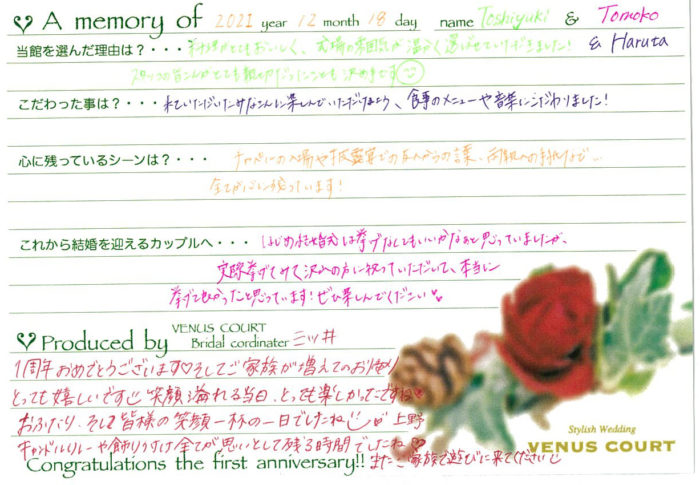 A memory of 2021 year 12 month 18 day name Toshiyuki & Tomoko
& Haruta
当館を選んだ理由は？・・・料理がとてもおいしく、式場の雰囲気が温かく選ばせていただきました！
スタッフの皆さんがとても親切だったことも決め手です
こだわった事は？・・・来ていただいたみなさんに楽しんでいただけるよう、食事のメニューや音楽にこだわりました！
心に残っているシーンは？・・・チャペルの入場や披露宴での友人からの言葉、両親への手紙など…
全てが心に残っています！
これから結婚を迎えるカップルへ・・・はじめは結婚式は挙げなくてもいいかなぁと思っていましたが、
実際挙げてみて沢山の方に祝っていただいて、本当に
挙げて良かったと思っています！ぜひ楽しんでください
Produced by VENUS COURT Bridal cordinater 三ツ井
1周年おめでとうございます♡そしてご家族が増えてのお便り
とっても嬉しいです 笑顔溢れる当日、とっても楽しかったですね
おふたり、そして皆様の笑顔一杯の一日でしたね 上野
キャンドルリレーや飾りつけ全てが思い出として残る時間でしたね♡
Congratulations the first anniversary!! またご家族で遊びに来てください
Stylish Wedding
VENUS COURT